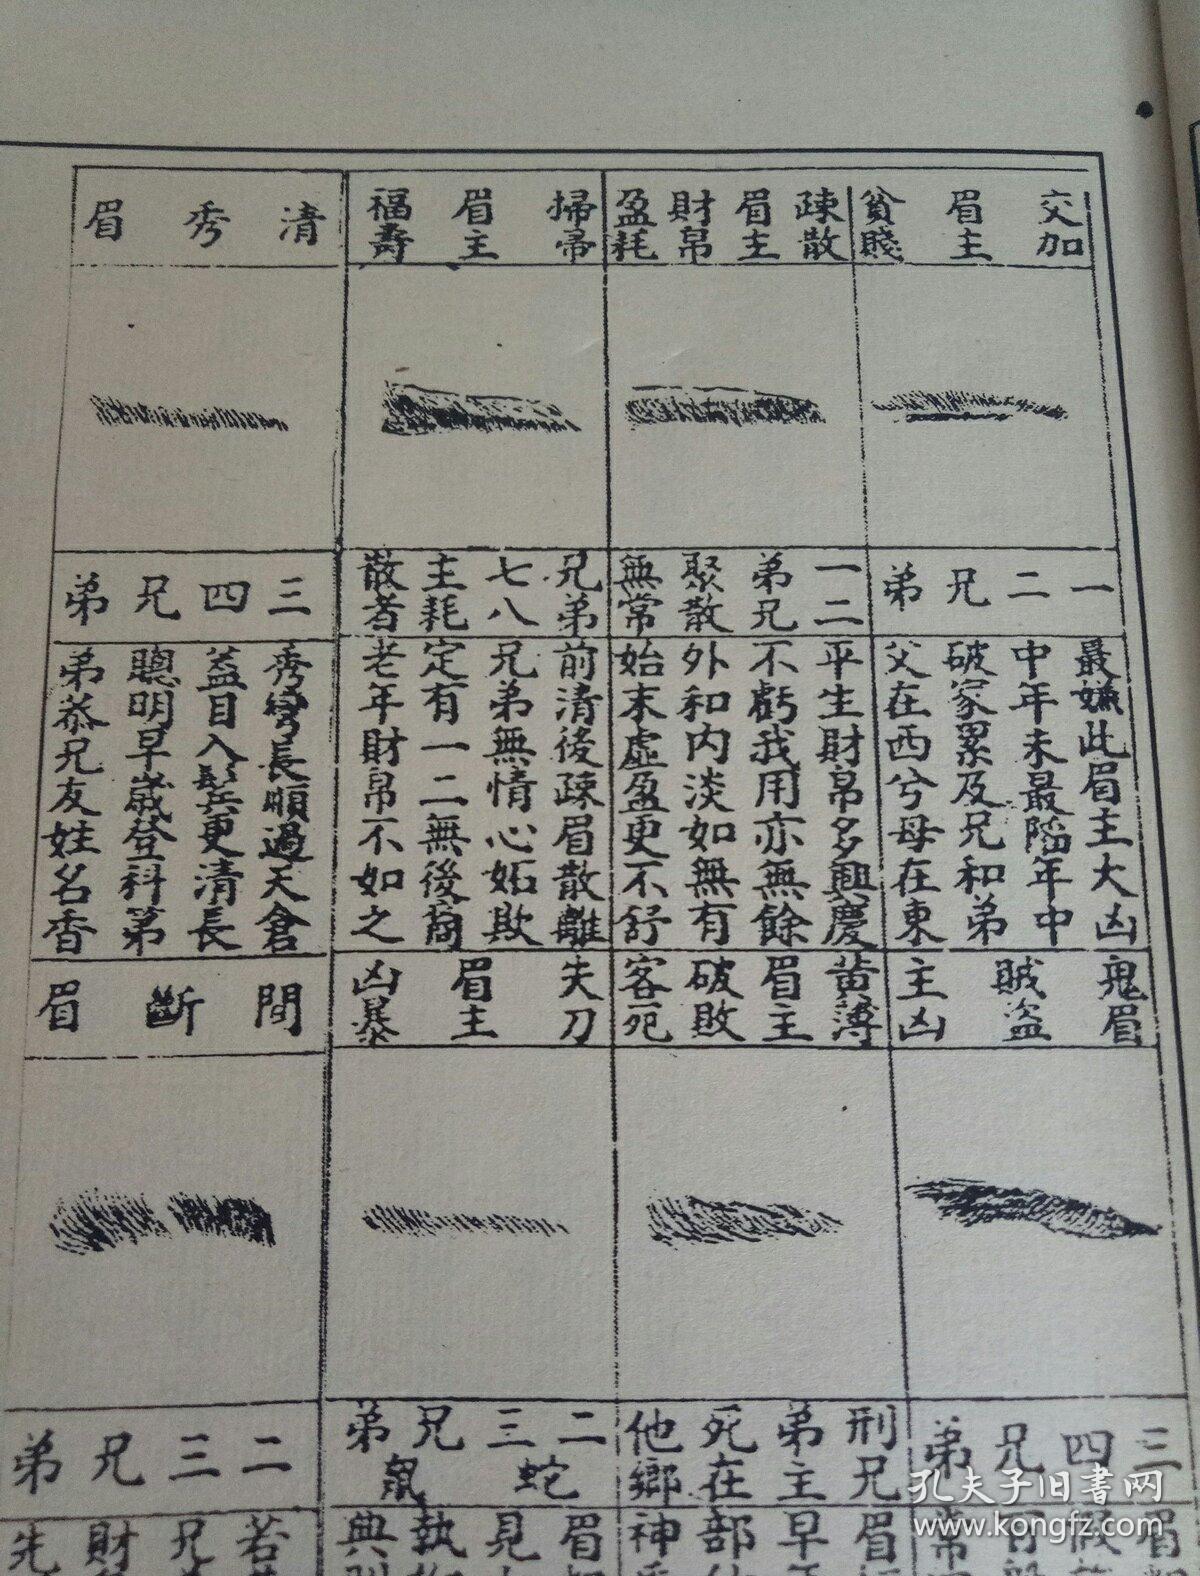 交加
眉主
貧賤
一二兄弟
最嫌此眉主大凶
中年未最陷年中
破家累及兄和弟
父在西兮母在東
疎散
眉主
財帛
盈耗
一二
弟兄
聚散
無常
平生財帛多興慶
不虧我用亦無餘
外和內淡如無有
始末虛盈更不舒
掃帚
眉主
福壽
兄弟
七八
主耗
散者
前清後疎眉散離
兄弟無情心妬欺
定有一二無後裔
老年財帛不如之
清秀眉
三四兄弟
秀彎長順過天倉
蓋目入鬂更清長
聰明早歲登科第
弟恭兄友姓名香
鬼眉
賊盜
主凶
三四兄弟
黃薄
眉主
破敗
客死
刑兄
弟主
死在
他鄉
眉
早
部
神
失刀
眉主
凶暴
二三兄弟
蛇鼠
眉
見
執
典
間斷眉
二三兄弟
若
兄
財
先
孔夫子旧書网
www.kongfz.com